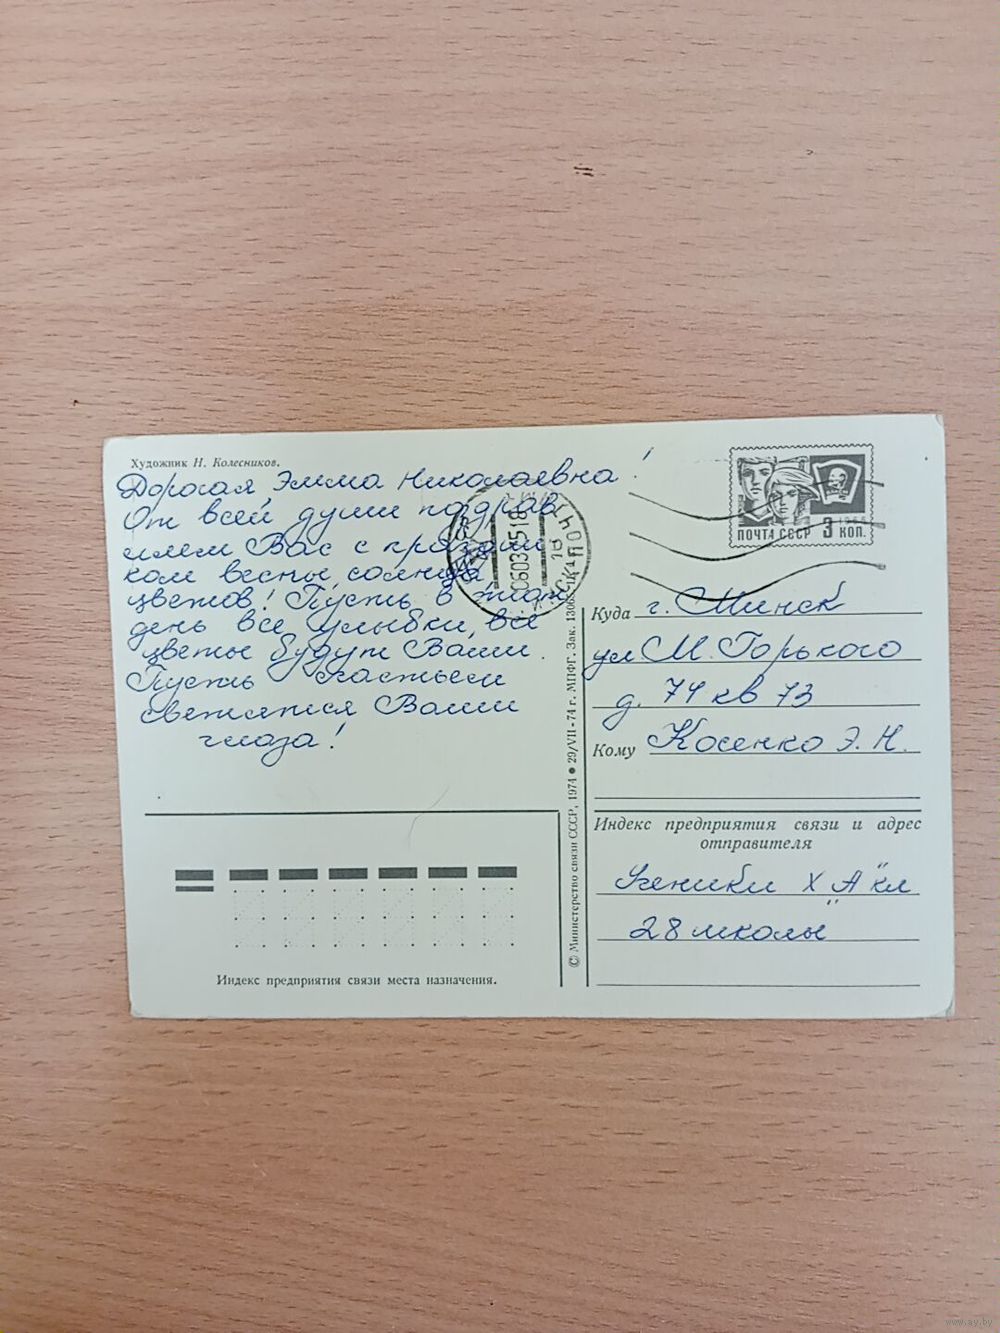 Художник Н. Колесников.
Дорогая Эмма Николаевна!
От всей души поздрав
ляем Вас с праздни
ком весны, солнца,
цветов! Пусть в этот
день все улыбки, все
цветы будут Ваши.
Пусть счастьем
светятся Ваши
глаза!
Индекс предприятия связи места назначения.
© Министерство связи СССР, 1974 ● 29/VII-74 г. МПФГ. Зак.
ПОЧТА СССР 3 КОП.
Куда г. Минск
ул. М. Горького
д. 74 кв 73
Кому Косенко Э. Н.
Индекс предприятия связи и адрес
отправителя
Ученики X „А" кл
28 школы
www.ay.by